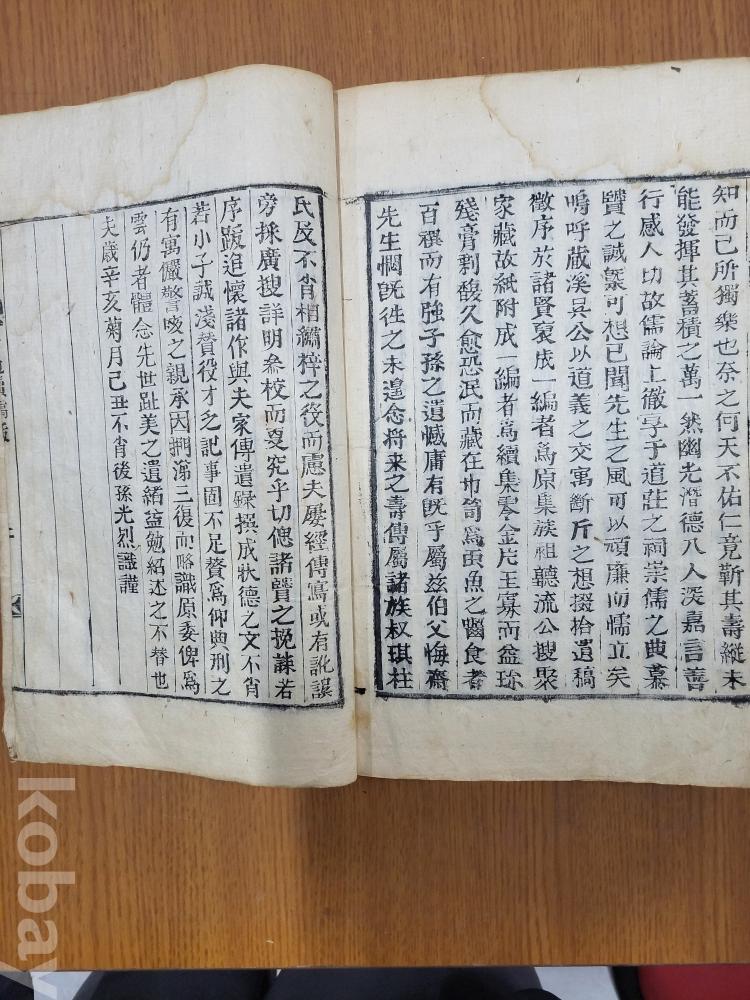 知而已所獨樂也奈之何天不佑仁竟靳其壽縱未
能發揮其蓄積之萬一然幽光潛德人人深嘉言善
行感人切故儒論上徹孚于道莊之祠崇儒之典慕
賢之誠槩可想已聞先生之風可以頑廉而懦立矣
嗚呼葳溪吳公以道義之交寓斷斤之想掇拾遺稿
徵序於諸賢裒成一編者爲原集族祖聽流公搜聚
家藏故紙附成一編者爲續集零金片玉寡而益珍
殘膏剩馥久愈恐泯而藏在巾笥爲䖝魚之蠧食者
百禩而有強子孫之遺憾庸有旣乎屬玆伯父悔齋
先生憫旣徃之未遑念將来之壽傳屬諸族叔琪柱
氏及不肖相繡梓之役而慮夫屢經傳寫或有訛誤
旁採廣搜詳明叅校而夏究乎切偲諸賢之挽誄若
序跋追懷諸作與夫家傳遺錄撰成狀德之文不肖
若小子誠淺贊役才乏記事固不足贅爲仰典刑之
有寓儼警咳之親承因捫涕三復而略識原委俾爲
雲仍者體念先世趾美之遺緖益勉紹述之不替也
夫歲辛亥菊月己丑不肖後孫光烈識謹
kobay